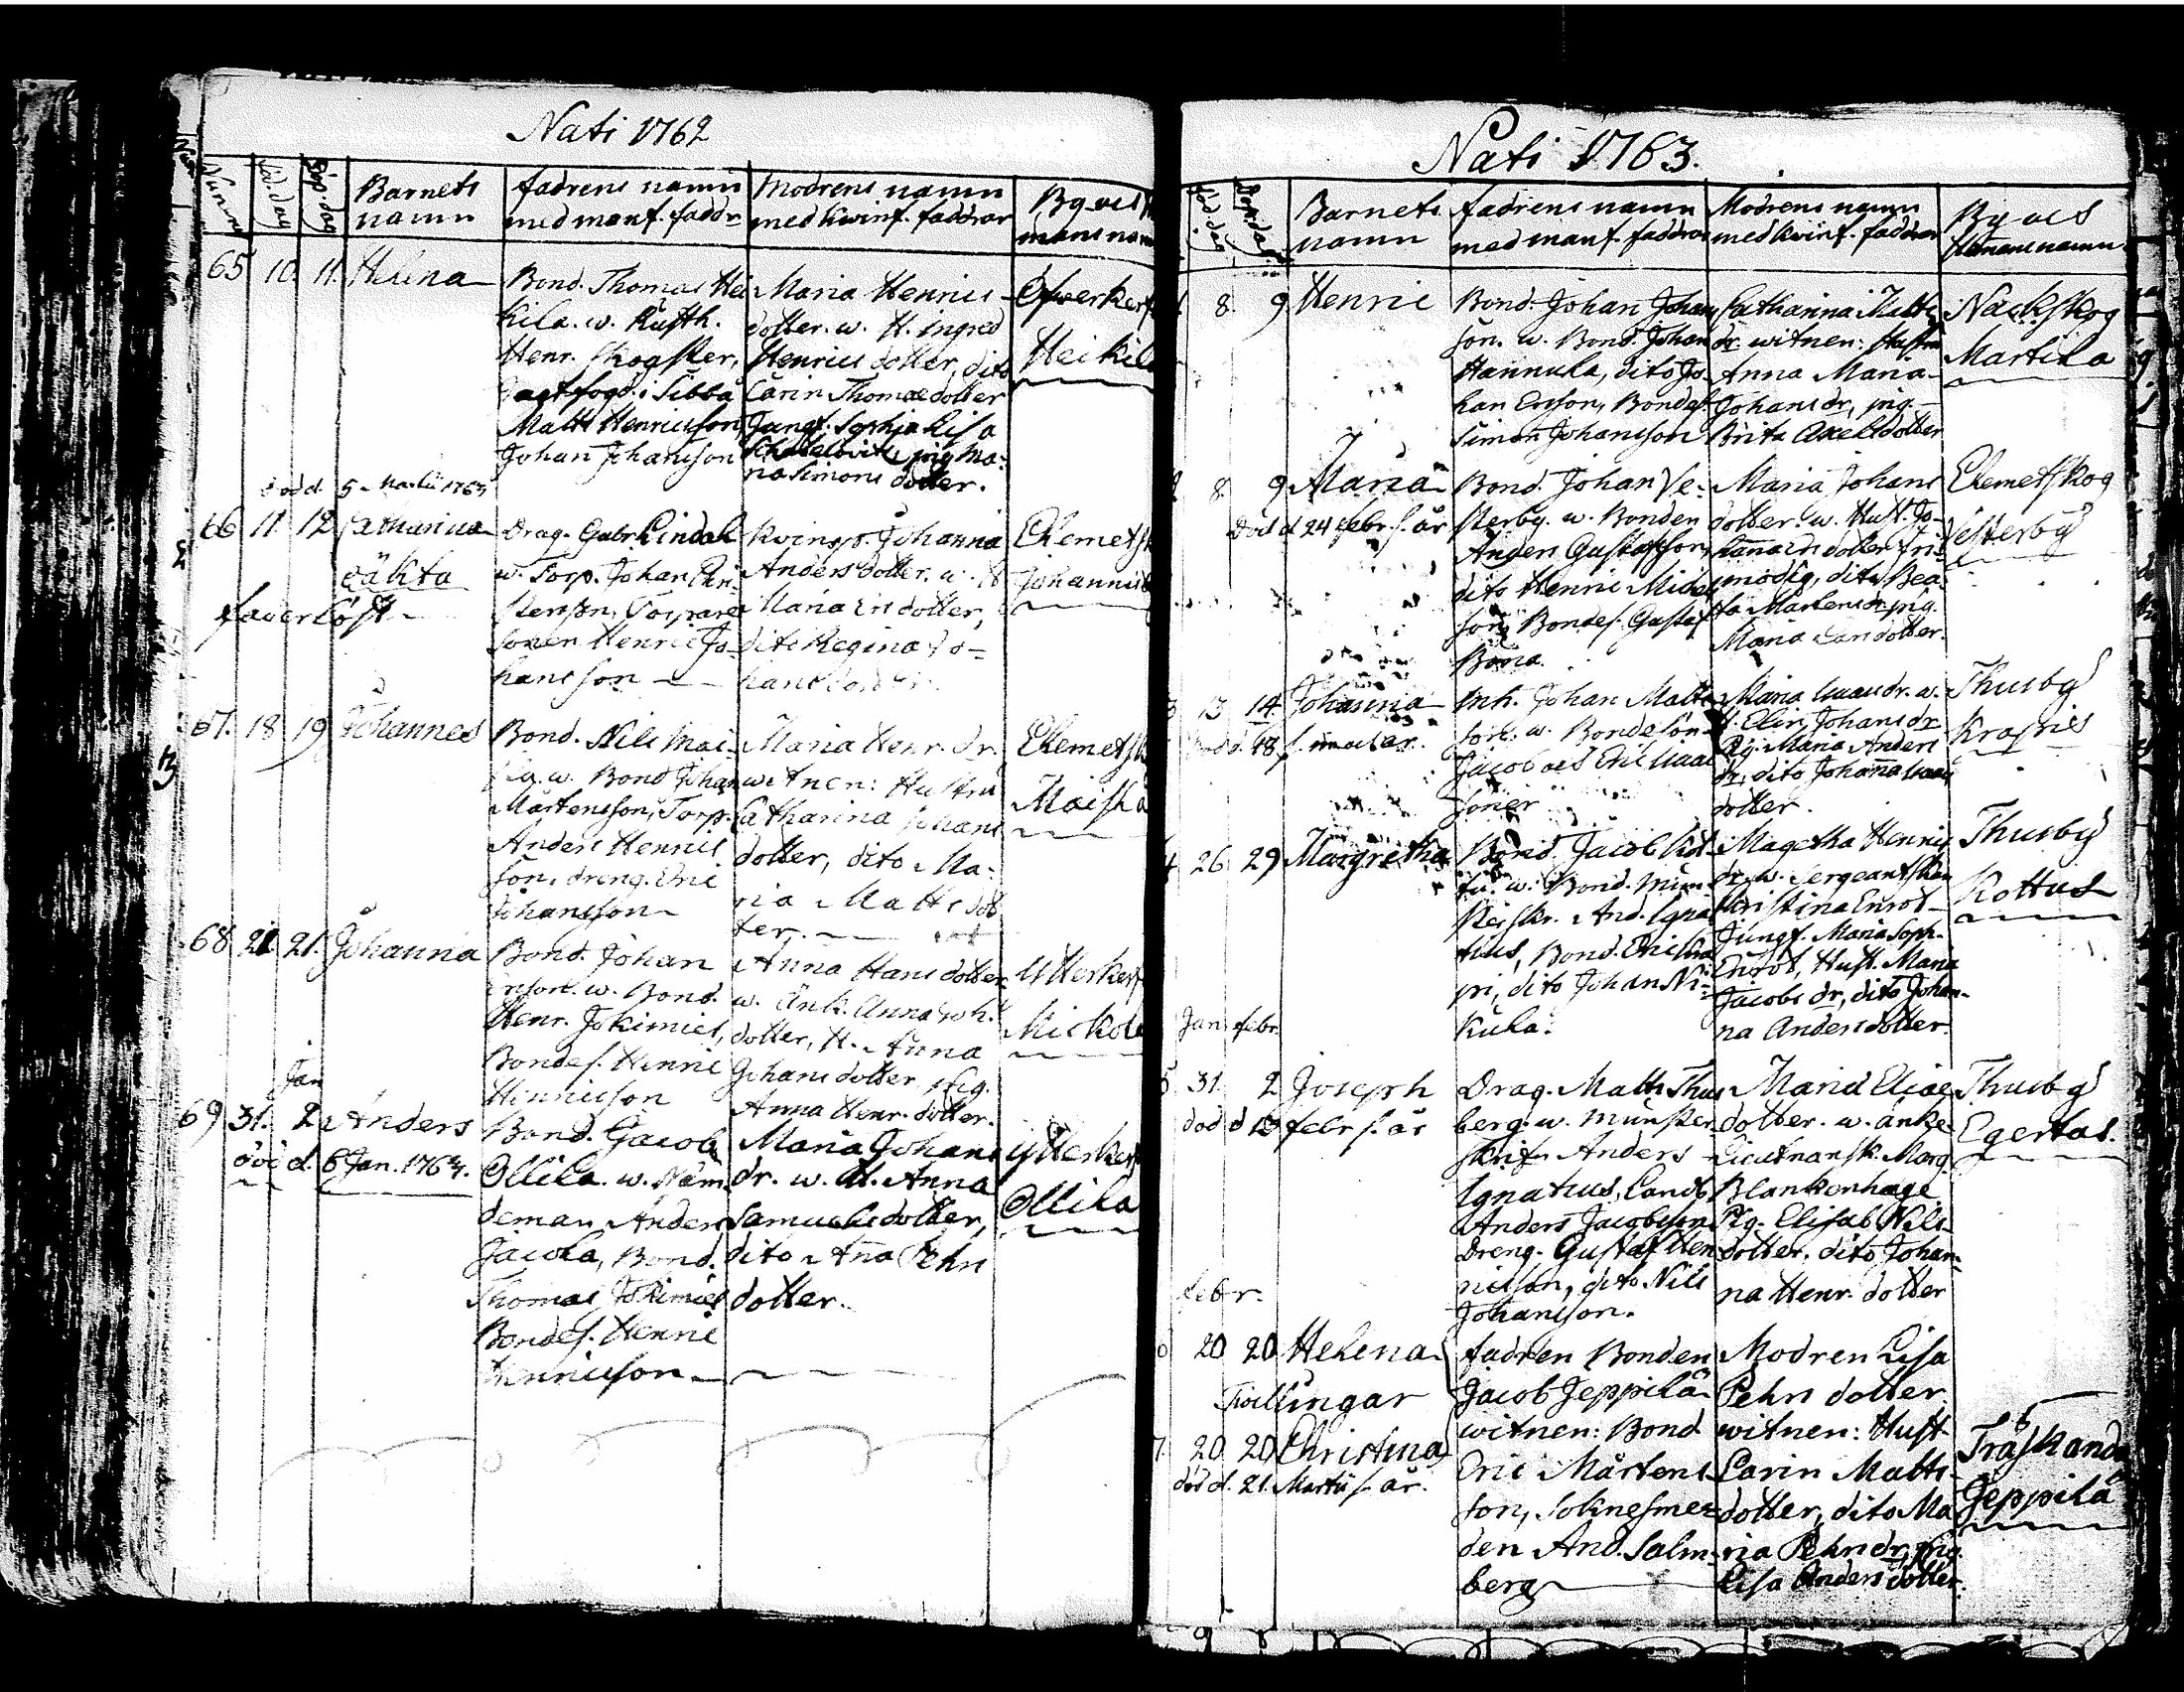 Nati 1762
Num
Föd. dag
Döp. dag
Barnets
namn
fadrens namn
med manf. faddr
Modrens namn
med kwinf. faddrar
By och
mans nam
65 10. 11. Helena
Bond. Thomas Hei
kila. w. Rusth.
Henr. Skogster,
i Sibbå
Matts Henricsson,
Johan Johansson
Maria Henrics
dotter. w. H. ingred
Henrics dotter, dito
Carin Thomædotter
Jungf. Sophia Lisa
pig Ma-
ria Simons dotter.
Heikil
död d. 5 Martii 1763
66 11. 12. Catharina
oäkta
faderlöst
Drag. Gabr Lindahl
w. Torp. Johan Chri-
stersson, Torpare
sonen Henric Jo-
hansson
Kvinsp. Johanna
Anders dotter. w. H
Maria Ers dotter,
dito Regina Jo-
hans dotter.
Clemetsk
Johannis
67. 18 19 Johannes
Bond. Nils Mai-
w. Bond Johan
Mårtensson, Torp.
Anders Henrics
son, dreng. Eric
Johansson
Maria Henr. dr.
witnen: Hustru
Catharina Johans
dotter, dito Ma-
ria Matts dot
ter.
Clemetsk
68. 21 21. Johanna
Bond. Johan
Ersson. w. Bond.
Henr. Jokimies,
Bondes. Henric
Henricsson
Anna Hans dotter
w. Änk. Anna Joh.
dotter, H. Anna
Johans dotter, pig.
Anna Henr. dotter.
Ytterker
Mickol
Jan
69 31. 2 Anders
död d. 6 Jan. 1764.
Bond. Jacob
Ollila. w. Näm
deman Anders
Jacola, Bond.
Thomas Jokimies
Bondes. Henric
Henricsson
Maria Johans
dr. w. H. Anna
Samuelsdotter,
dito Anna Pehrs
dotter.
Ytterker
Ollila
Nati 1763.
Föd. dag
Döp. dag
Barnets
namn
fadrens namn
med manf. faddrar
Modrens namn
med kwinf. faddrar
By och
Hemmansnamn
8. 9 Henric
Bond. Johan Johans
son. w. Bond. Johan
Hannula, dito Jo-
han Ersson, Bondes.
Simon Johansson
Catharina Matts
dr. witnen: Hustru
Anna Maria
Johans dr, pig.
Brita Axelsdotter
Nackskog
Martila
8. 9 Maria
Död d 24 febr. s. år
Bond. Johan Ve-
sterby. w. Bonden
Anders Gustafsson,
dito Henric Mickel
son, Bondes. Gustaf
Maria Johans
dotter. w. Hust. Jo-
hanna Ers dotter Fri-
modig, dito Bea-
ta Mårtens dr, pig.
Maria Larsdotter.
Clemetskog
Vesterby
3 13 14. Johanna
död d. 18 s. m. och år.
Inh. Johan Matts
son. w. Bondesön
Jacob och Eric Isaac
söner
Maria Isaacs dr. w.
H. Elin Johans dr
Pig. Maria Anders
dr, dito Johanna Isaacs
dotter.
Thusby
Krapus
4 26. 29 Margretha
Bond. Jacob Kot
tu. w. Bond. Mün
sterskr. And. Igna
tius, Bond. Eric
dito Johan Ni-
kula.
Magretha Henrics
dr. w. Sergeantskan
Christina Enrot
Jungf. Maria Soph.
Enrot, Hust. Maria
Jacobs dr, dito Johan-
na Andersdotter.
Thusby
Kottus
Jan. febr.
5 31. 2 Joseph
död d 13 febr. s. år
Drag. Matts Thus
berg. w. Münster
skrif. Anders
Ignatius, Landb.
Anders Jacobsson
Dreng. Gustaf Hen
ricsson, dito Nils
Johansson.
Maria Elias
dotter. w. änke
Lieutnansk. Marg.
Blankenhage
Pig. Elisab. Nils-
dotter, dito Johan-
na Henr. dotter
Thusby
Egertas.
febr.
6 20 20 Helena
Twillingar
7. 20. 20 Christina
död d. 21. Martii s. år.
fadren Bonden
Jacob Jeppilä
witnen: Bond
Eric Mårtens
son, Soknesme-
den And. Salm-
berg
Modren Lisa
Pehrs dotter
witnen: Hust
Carin Matts-
dotter, dito Ma
ria Pehrs dr, pig.
Lisa Anders dotter.
Träskanda
Jeppilä